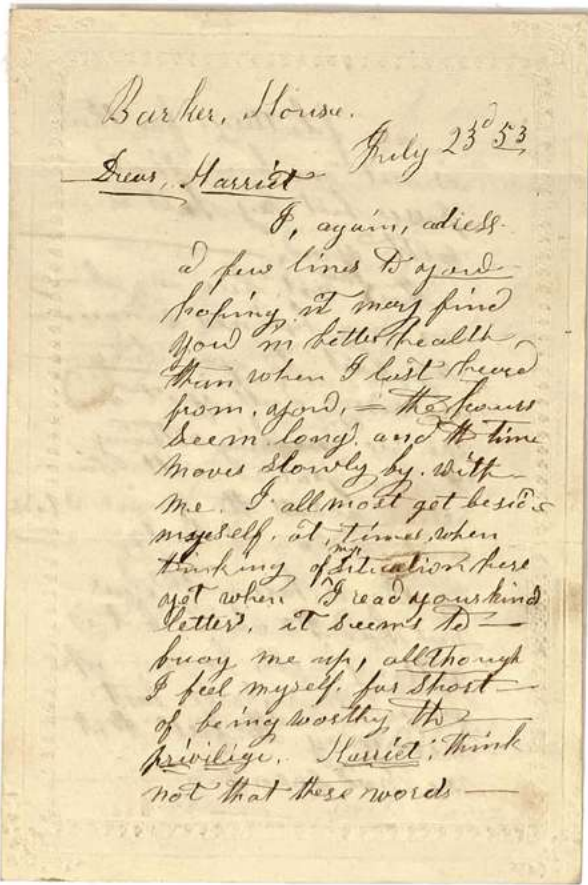 Barker, House.
July 23d 53
Dear, Harriet
I, again, adress
a few lines to you
hoping it may find
you in better health
than when I last heard
from, you, = the hours
seem long, and the time
moves slowly by. with
me. I allmost get beside
myself. at, times, when
thinking of my situation here
yet when I read your kind
letter, it seems to —
buoy me up, allthough
I feel myself. far short
of being worthy the
privilige. Harriet; think
not that these words —